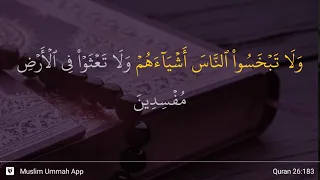 وَلَا تَبْخَسُوا۟ ٱلنَّاسَ أَشْيَآءَهُمْ وَلَا تَعْثَوْا۟ فِى ٱلْأَرْضِ
مُفْسِدِينَ
Muslim Ummah App
Quran 26:183